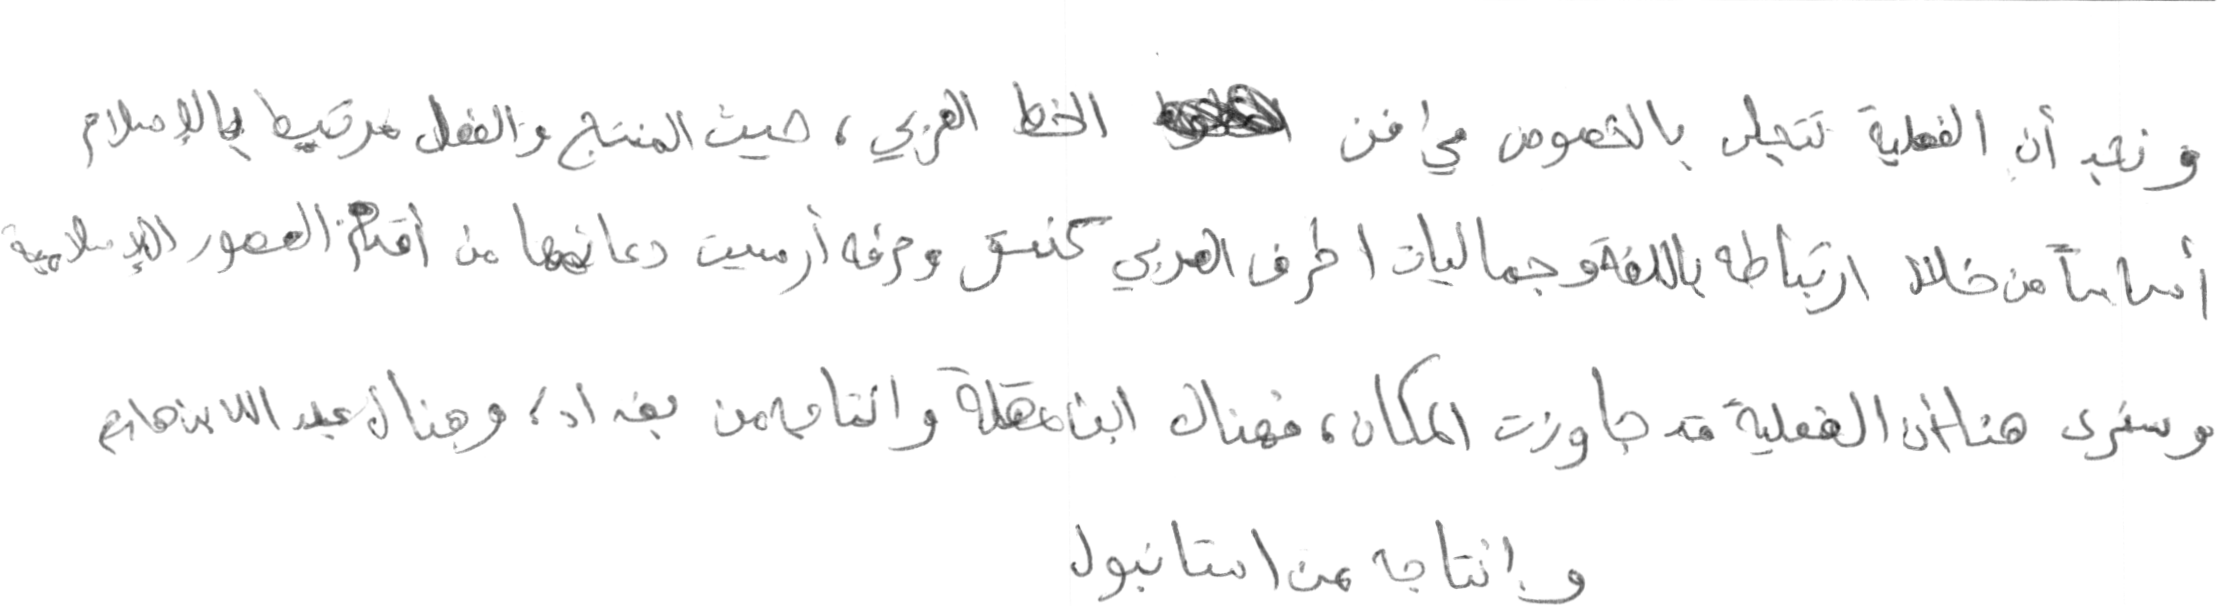 ونجد أن الفعلية تتجلى بالخصوص في فن الخط العربي، حيث المنتج والفعل مرتبط بالإسلام
أساساً من خلال ارتباطه باللغة وجماليات الحرف العربي كنسق وحرفه أرسيت دعائمها من أقدم العصور الإسلامية
وسنرى هنا أن الفعلية قد جاوزت المكان، فهناك ابن مقلة وانتاجه من بغداد، وهناك عبد الله
وإنتاجه من استانبول